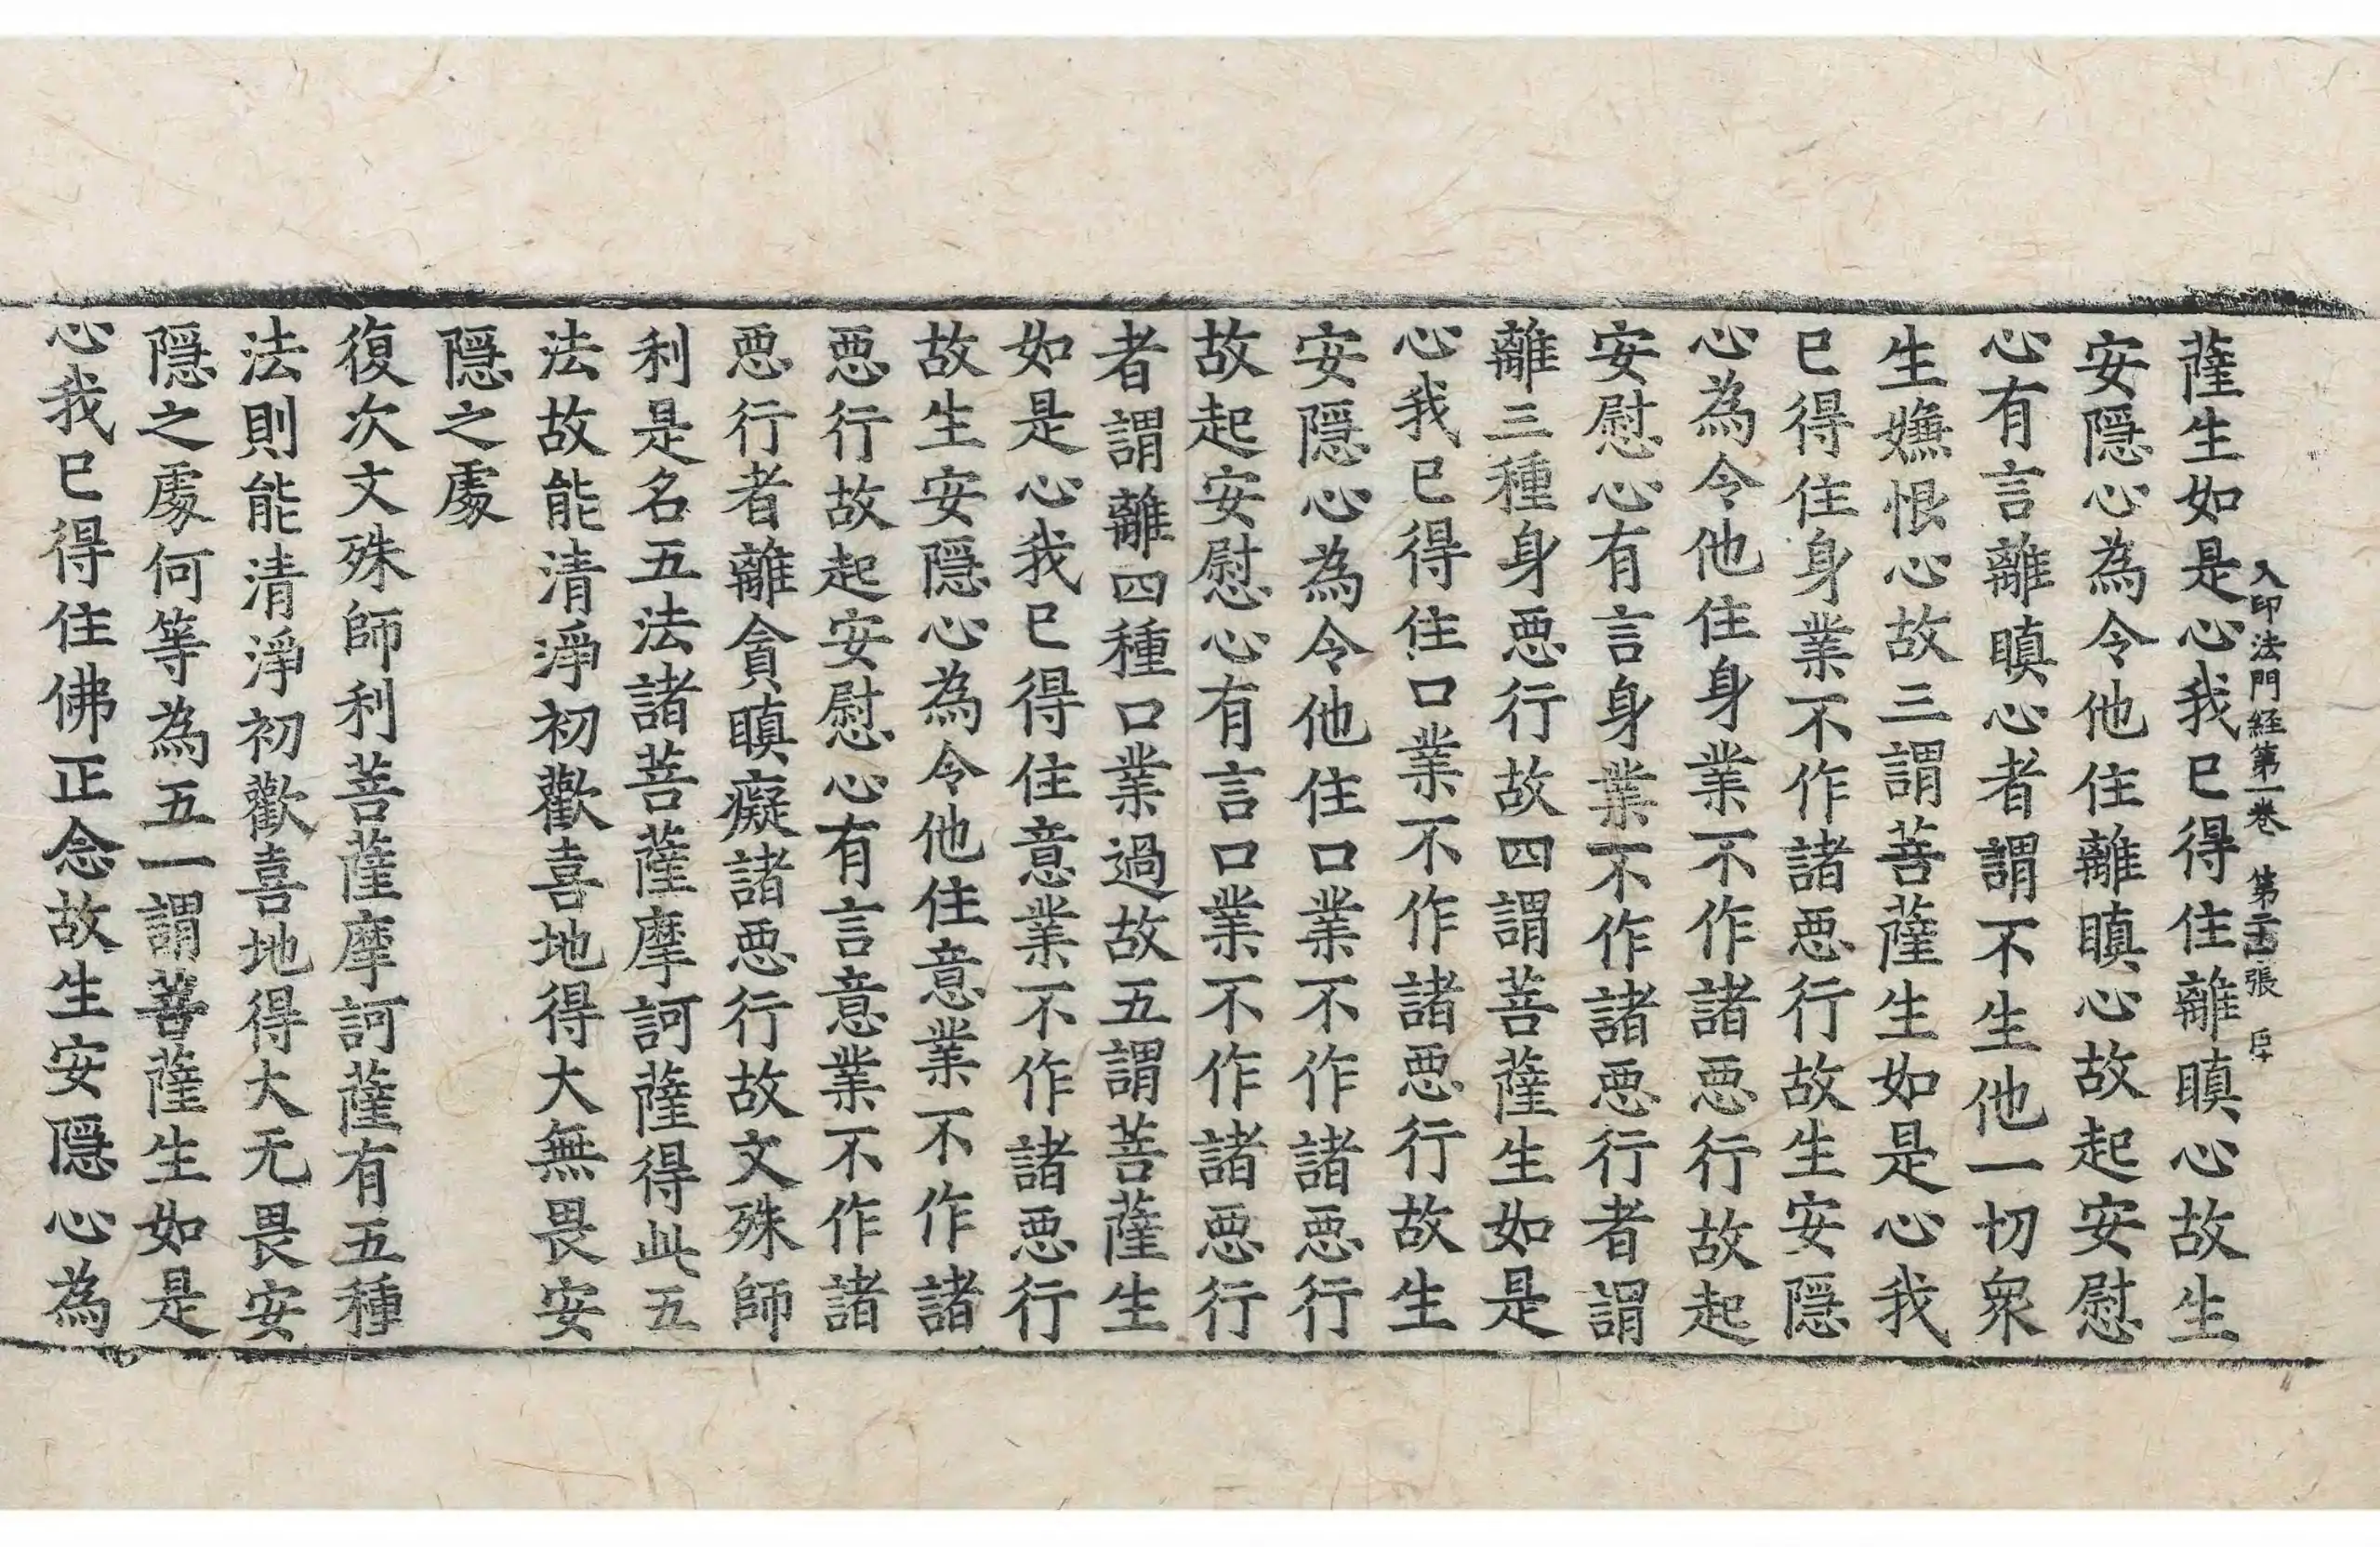 入印法門経第一卷 第二十四張 臣
薩生如是心我已得住離瞋心故生
安隱心為令他住離瞋心故起安慰
心有言離瞋心者謂不生他一切衆
生嫌恨心故三謂菩薩生如是心我
已得住身業不作諸惡行故生安隱
心為令他住身業不作諸惡行故起
安慰心有言身業不作諸惡行者謂
離三種身惡行故四謂菩薩生如是
心我已得住口業不作諸惡行故生
安隱心為令他住口業不作諸惡行
故起安慰心有言口業不作諸惡行
者謂離四種口業過故五謂菩薩生
如是心我已得住意業不作諸惡行
故生安隱心為令他住意業不作諸
惡行故起安慰心有言意業不作諸
惡行者離貪瞋癡諸惡行故文殊師
利是名五法諸菩薩摩訶薩得此五
法故能清淨初歡喜地得大無畏安
隱之處
復次文殊師利菩薩摩訶薩有五種
法則能清淨初歡喜地得大无畏安
隱之處何等為五一謂菩薩生如是
心我已得住佛正念故生安隱心為